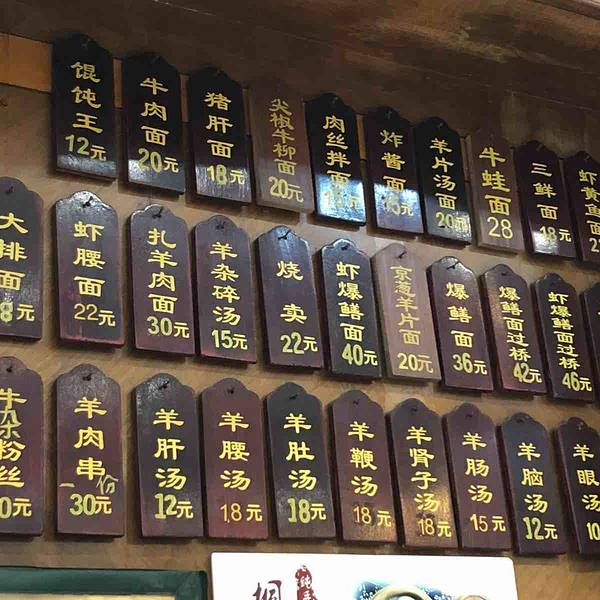 馄饨王 12元
牛肉面 20元
猪肝面 18元
尖椒牛柳面 20元
肉丝拌面
炸酱面 15元
羊片汤面 20元
牛蛙面 28
三鲜面 18元
虾黄鱼面
大排面 8元
虾腰面 22元
扎羊肉面 30元
羊杂碎汤 15元
烧卖 22元
虾爆鳝面 40元
京葱羊片面 20元
爆鳝面 36元
爆鳝面过桥 42元
虾爆鳝面过桥 46元
牛杂粉丝 0元
羊肉串 一份 30元
羊肝汤 12元
羊腰汤 1,8元
羊肚汤 18元
羊鞭汤 18元
羊肾子汤 18元
羊肠汤 15元
羊脑汤 12元
羊眼汤 10
桐